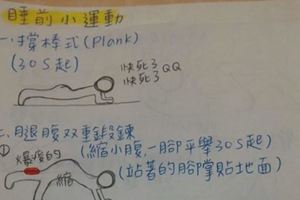 睡前小運動
一、撐棒式(Plank)
(30S起)
快死了QQ
快死了
二、腿腹双重鍛鍊
(縮小腹,一腳平舉30S起)
(站著的腳掌貼地面)
①
爆瘦的
縮